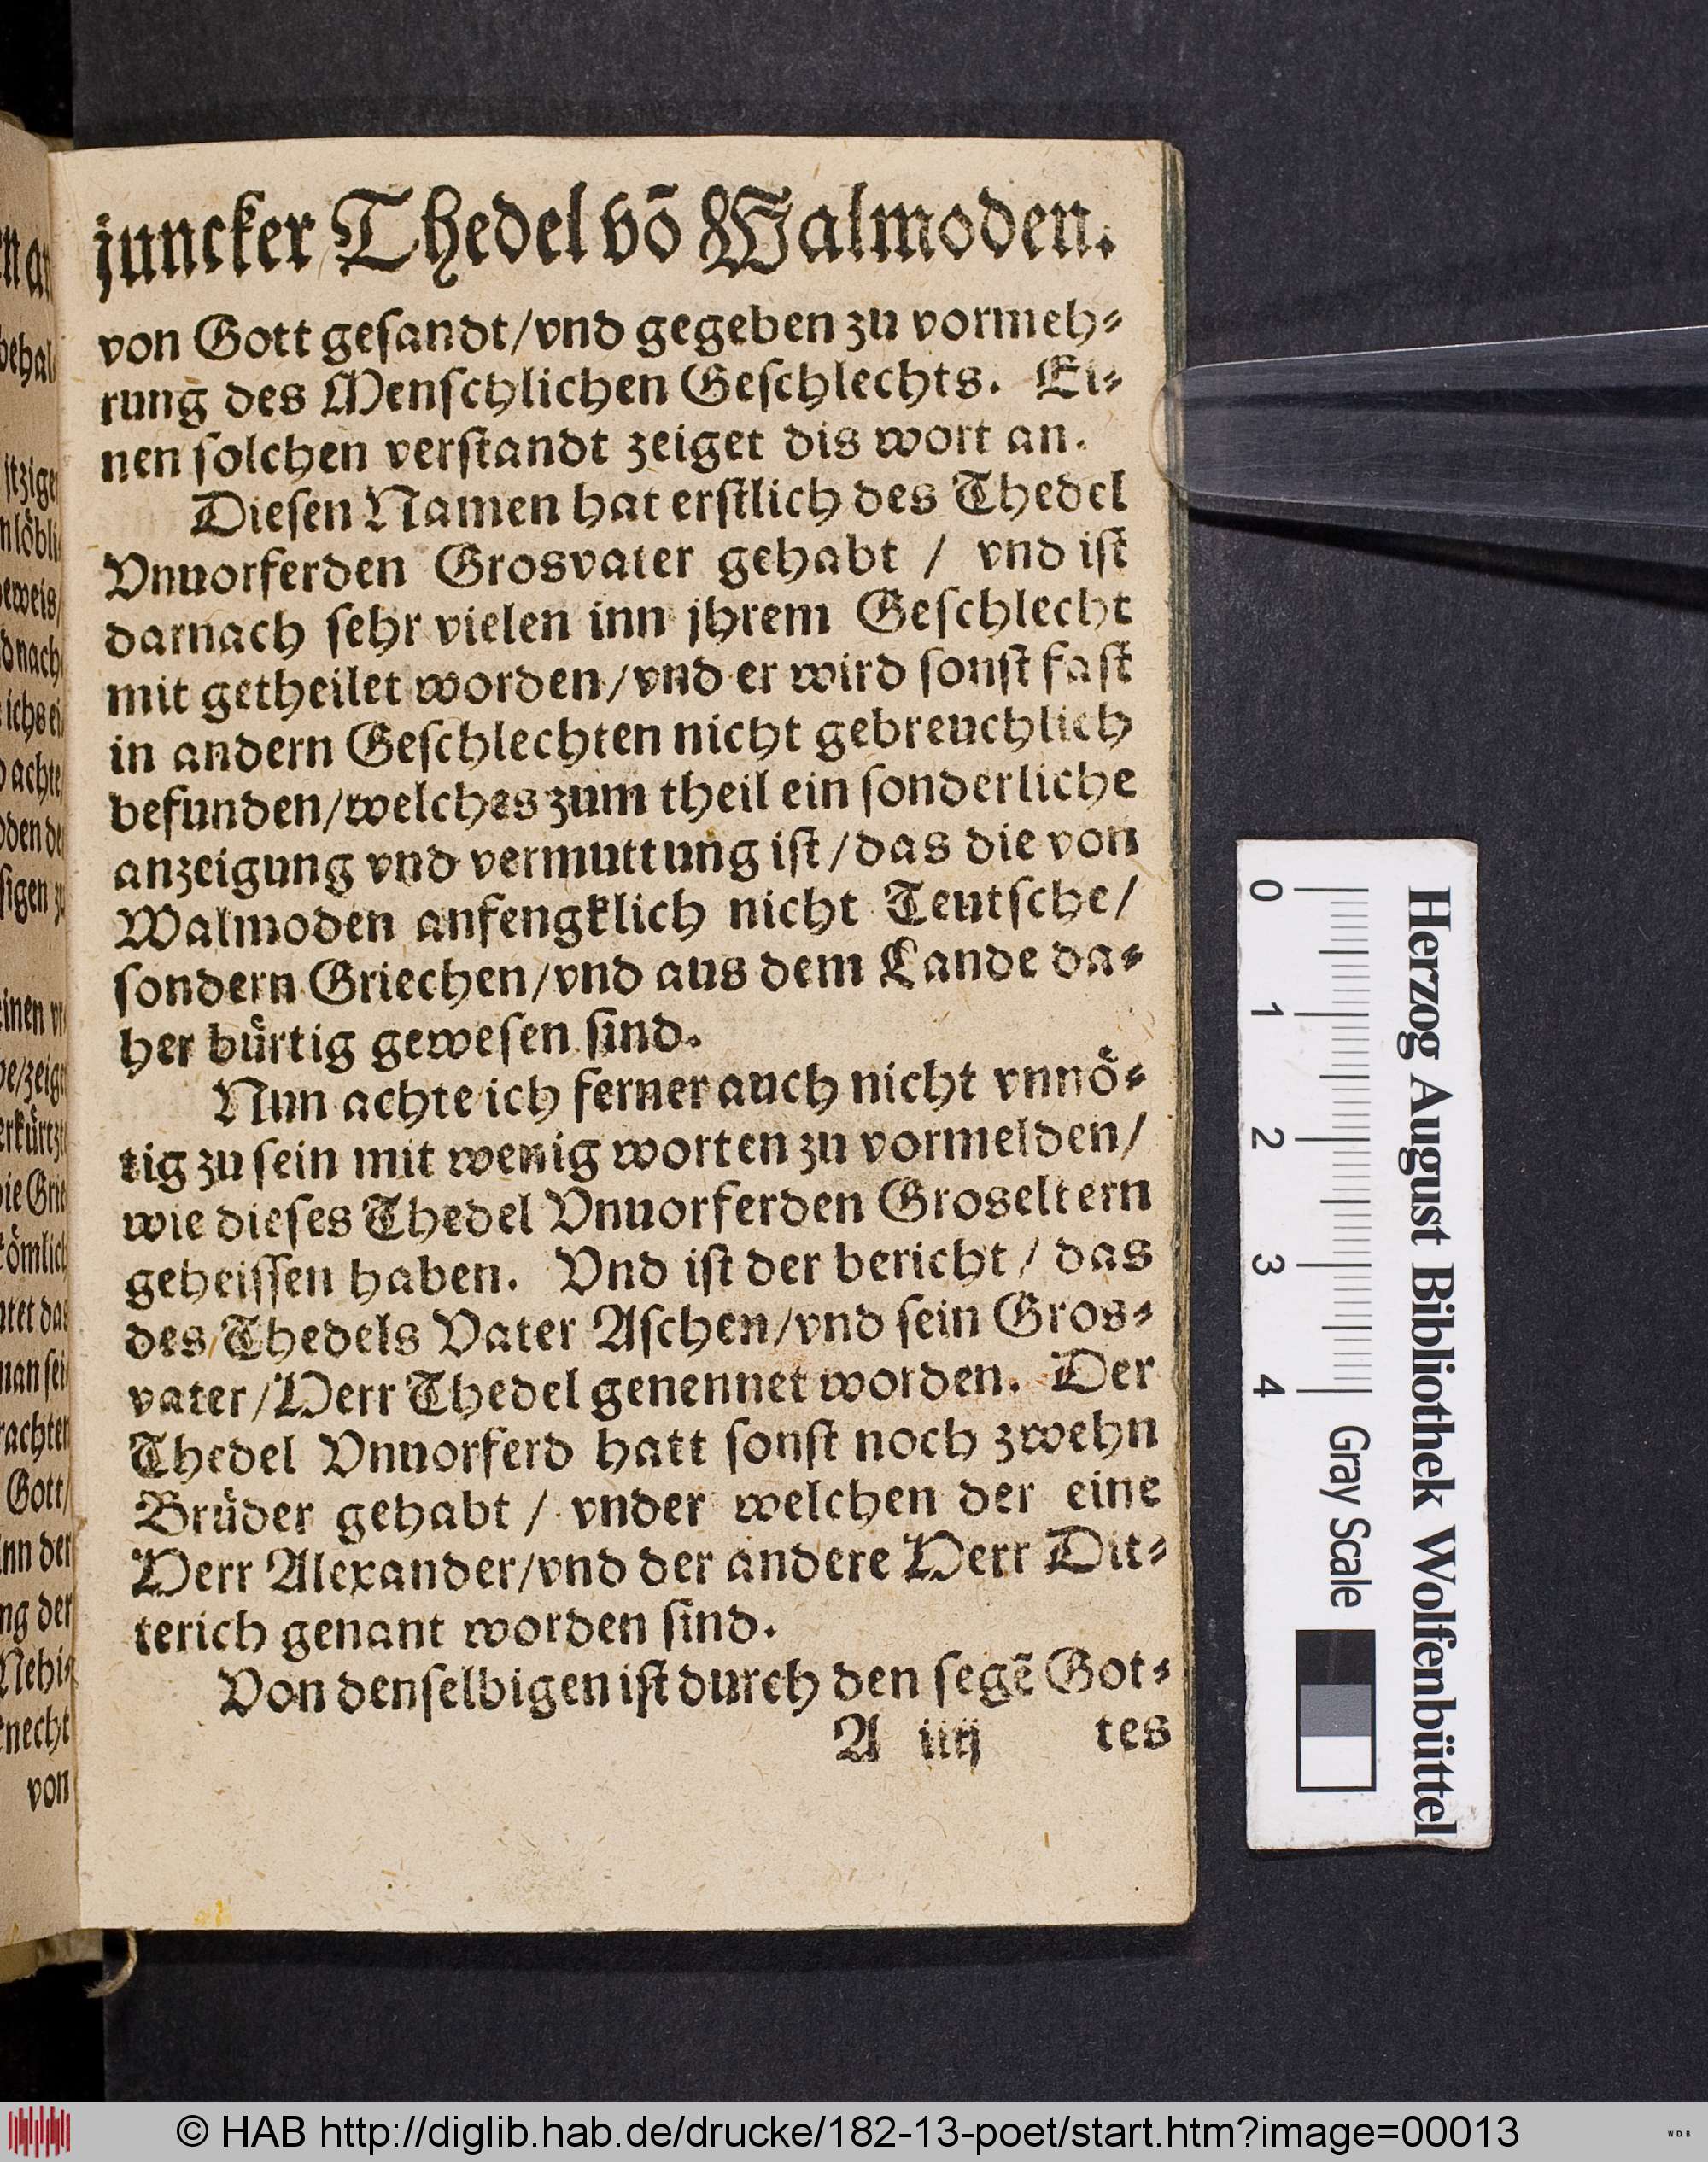 juncker Thedel võ Walmoden.
von Gott gesandt/vnd gegeben zu vormeh-
rung des Menschlichen Geschlechts. Ei-
nen solchen verstandt zeiget dis wort an.
Diesen Namen hat erstlich des Thedel
Vnuorferden Grosvater gehabt / vnd ist
darnach sehr vielen inn jhrem Geschlecht
mit getheilet worden/vnd er wird sonst fast
in andern Geschlechten nicht gebreuchlich
befunden/welches zum theil ein sonderliche
anzeigung vnd vermuttung ist/das die von
Walmoden anfengklich nicht Teutsche/
sondern Griechen/vnd aus dem Lande da-
her bürtig gewesen sind.
Nun achte ich ferner auch nicht vnnö-
tig zu sein mit wenig worten zu vormelden/
wie dieses Thedel Vnuorferden Groseltern
geheissen haben. Vnd ist der bericht / das
des Thedels Vater Aschen/vnd sein Gros-
vater/Herr Thedel genennet worden. Der
Thedel Vnuorferd hatt sonst noch zwehn
Brüder gehabt / vnder welchen der eine
Herr Alexander/vnd der andere Herr Dit-
terich genant worden sind.
Von denselbigen ist durch den segē Got-
A iiij tes
itzige
nach
achte
Gott/
inn der
ng der
Nehi-
knecht
von
0 1 2 3 4
Gray Scale
Herzog August Bibliothek Wolfenbüttel
© HAB http://diglib.hab.de/drucke/182-13-poet/start.htm?image=00013
WDB